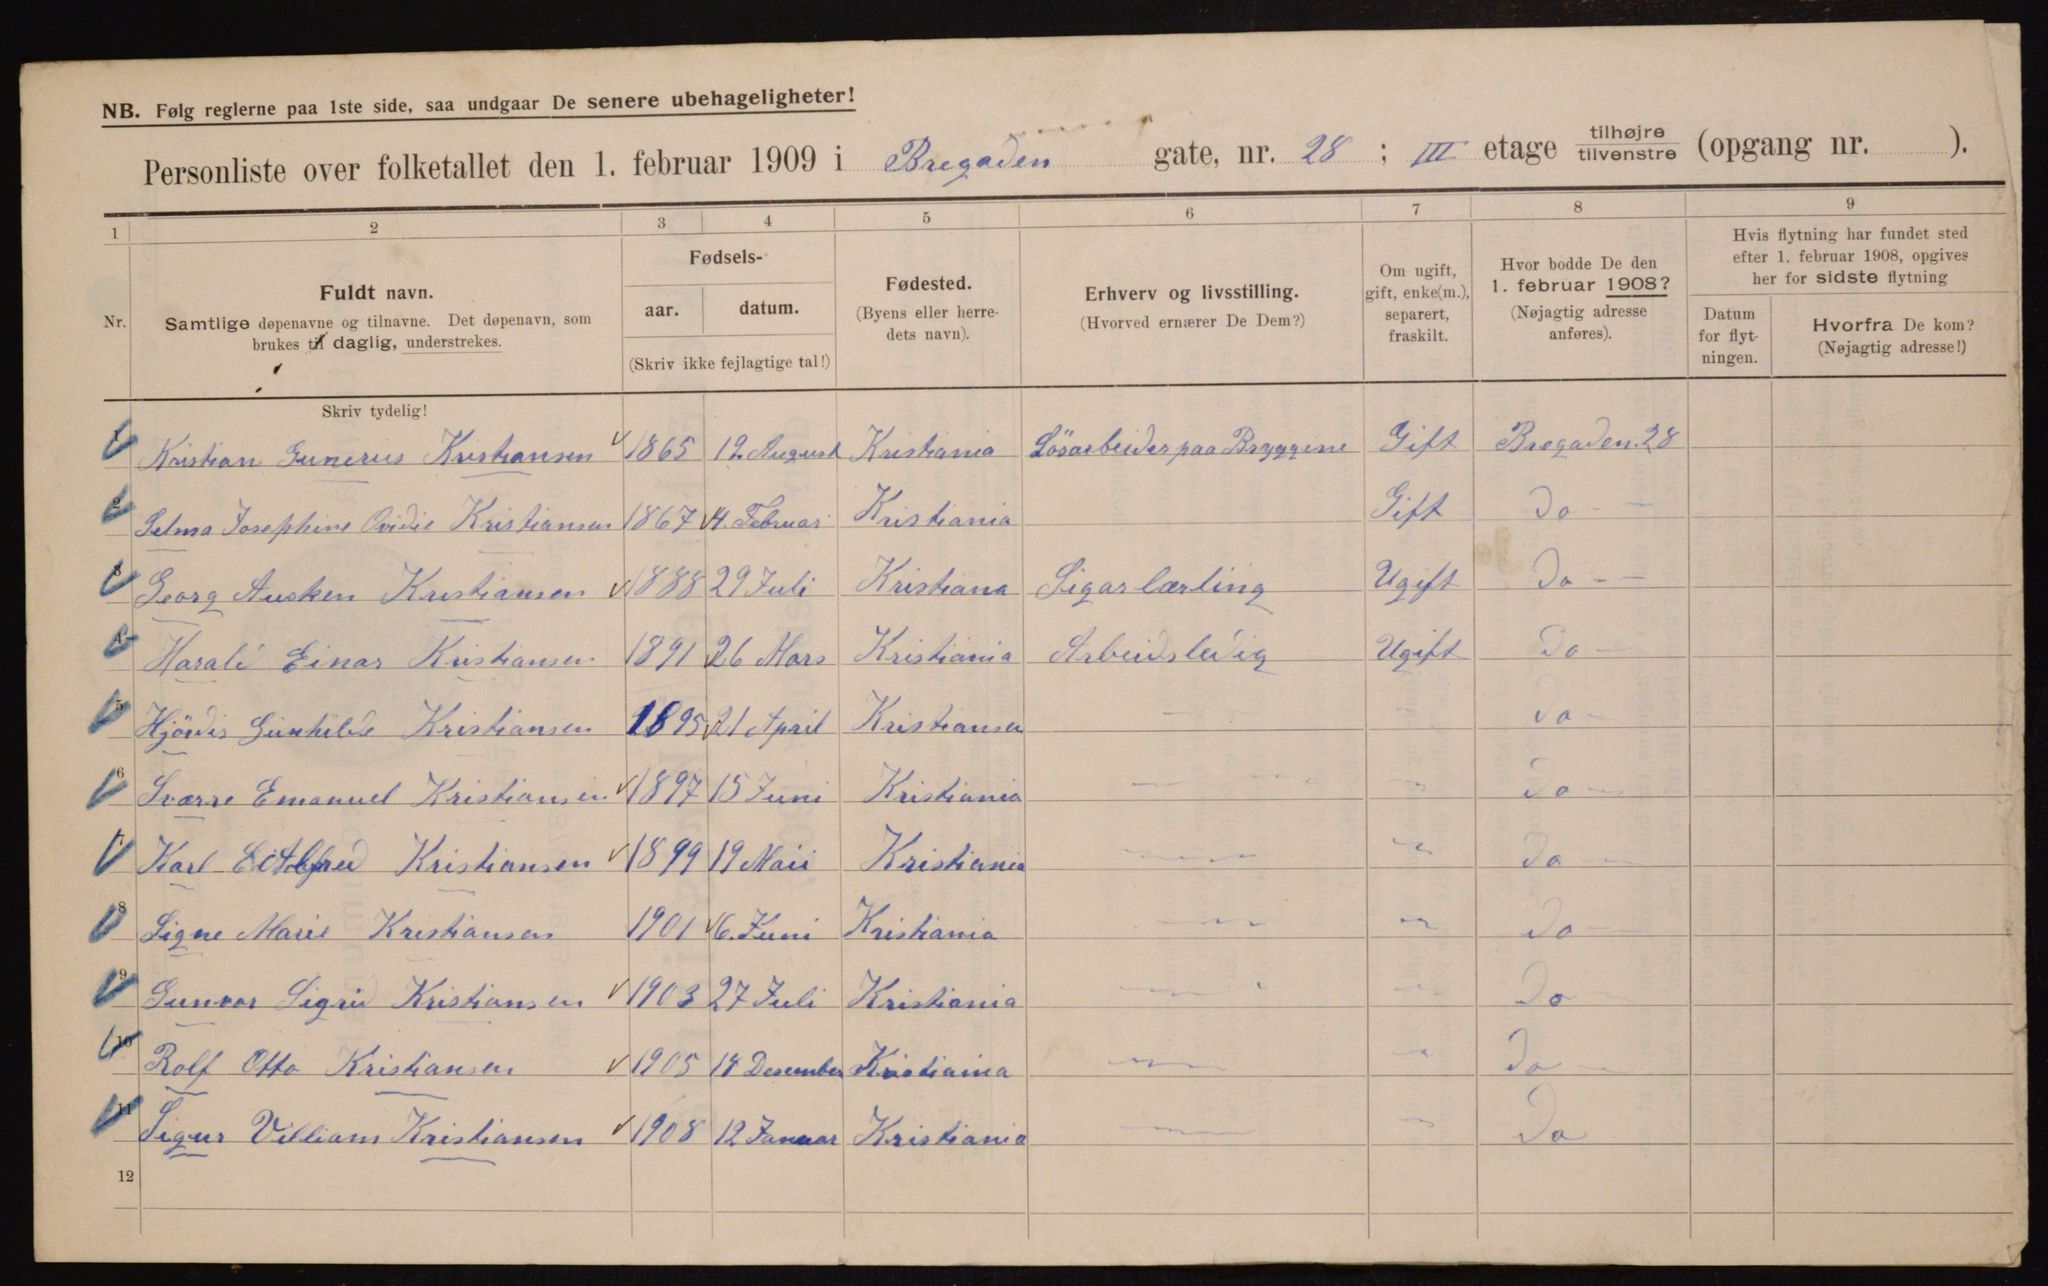 NB. Følg reglerne paa 1ste side, saa undgaar De senere ubehageligheter!
Personliste over folketallet den 1. februar 1909 i Bregaden gate, nr. 28 ; III etage tilhøjre tilvenstre (opgang nr. ).
1 2 3 4 5 6 7 8 9
Nr.
Fuldt navn.
Samtlige døpenavne og tilnavne. Det døpenavn, som
brukes til daglig, understrekes.
Skriv tydelig!
Fødsels-
aar. datum.
(Skriv ikke fejlagtige tal!)
Fødested.
(Byens eller herre-
dets navn).
Erhverv og livsstilling.
(Hvorved ernærer De Dem?)
Om ugift,
gift, enke(m.),
separert,
fraskilt.
Hvor bodde De den
1. februar 1908?
(Nøjagtig adresse
anføres).
Hvis flytning har fundet sted
efter 1. februar 1908, opgives
her for sidste flytning
Datum
for flyt-
ningen.
Hvorfra De kom?
(Nøjagtig adresse!)
1 Kristian Gunerius Kristiansen 1865 12 August Kristiania Lösarbeider paa Bryggene Gift Bregaden 28
2 Selma Josephine Ovidie Kristiansen 1867 4 Februar Kristiania Gift Do
3 Georg Kristiansen 1888 29 Juli Kristiana Sigarlærling Ugift Do
4 Harald Einar Kristiansen 1891 26 Mars Kristiania Arbeidsledig Ugift Do
5 Hjördis Gunhilde Kristiansen 1895 21 April Kristiansen Do
6 Sværre Emanuel Kristiansen 1897 15 Juni Kristiania Do
7 Karl Kristiansen 1899 19 Maii Kristiania Do
8 Signe Marie Kristiansen 1901 6. Juni Kristiania Do
9 Gunvor Sigrid Kristiansen 1903 27 Juli Kristiania Do
10 Rolf Otto Kristiansen 1905 18 Desember Kristiania Do
11 Sigur Villiam Kristiansen 1908 12 Januar Kristiania Do
12